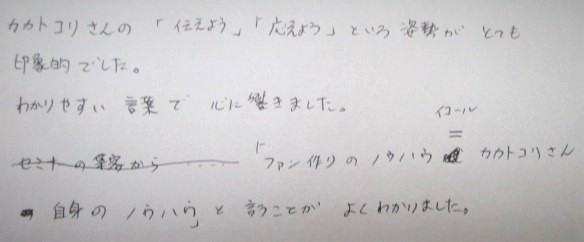 カカトコリさんの「伝えよう」「応えよう」という姿勢がとても
印象的でした。
わかりやすい言葉で心に響きました。
イコール
セミナーの集客から 「ファン作りのノウハウ = カカトコリさん
自身のノウハウ」と言うことがよくわかりました。